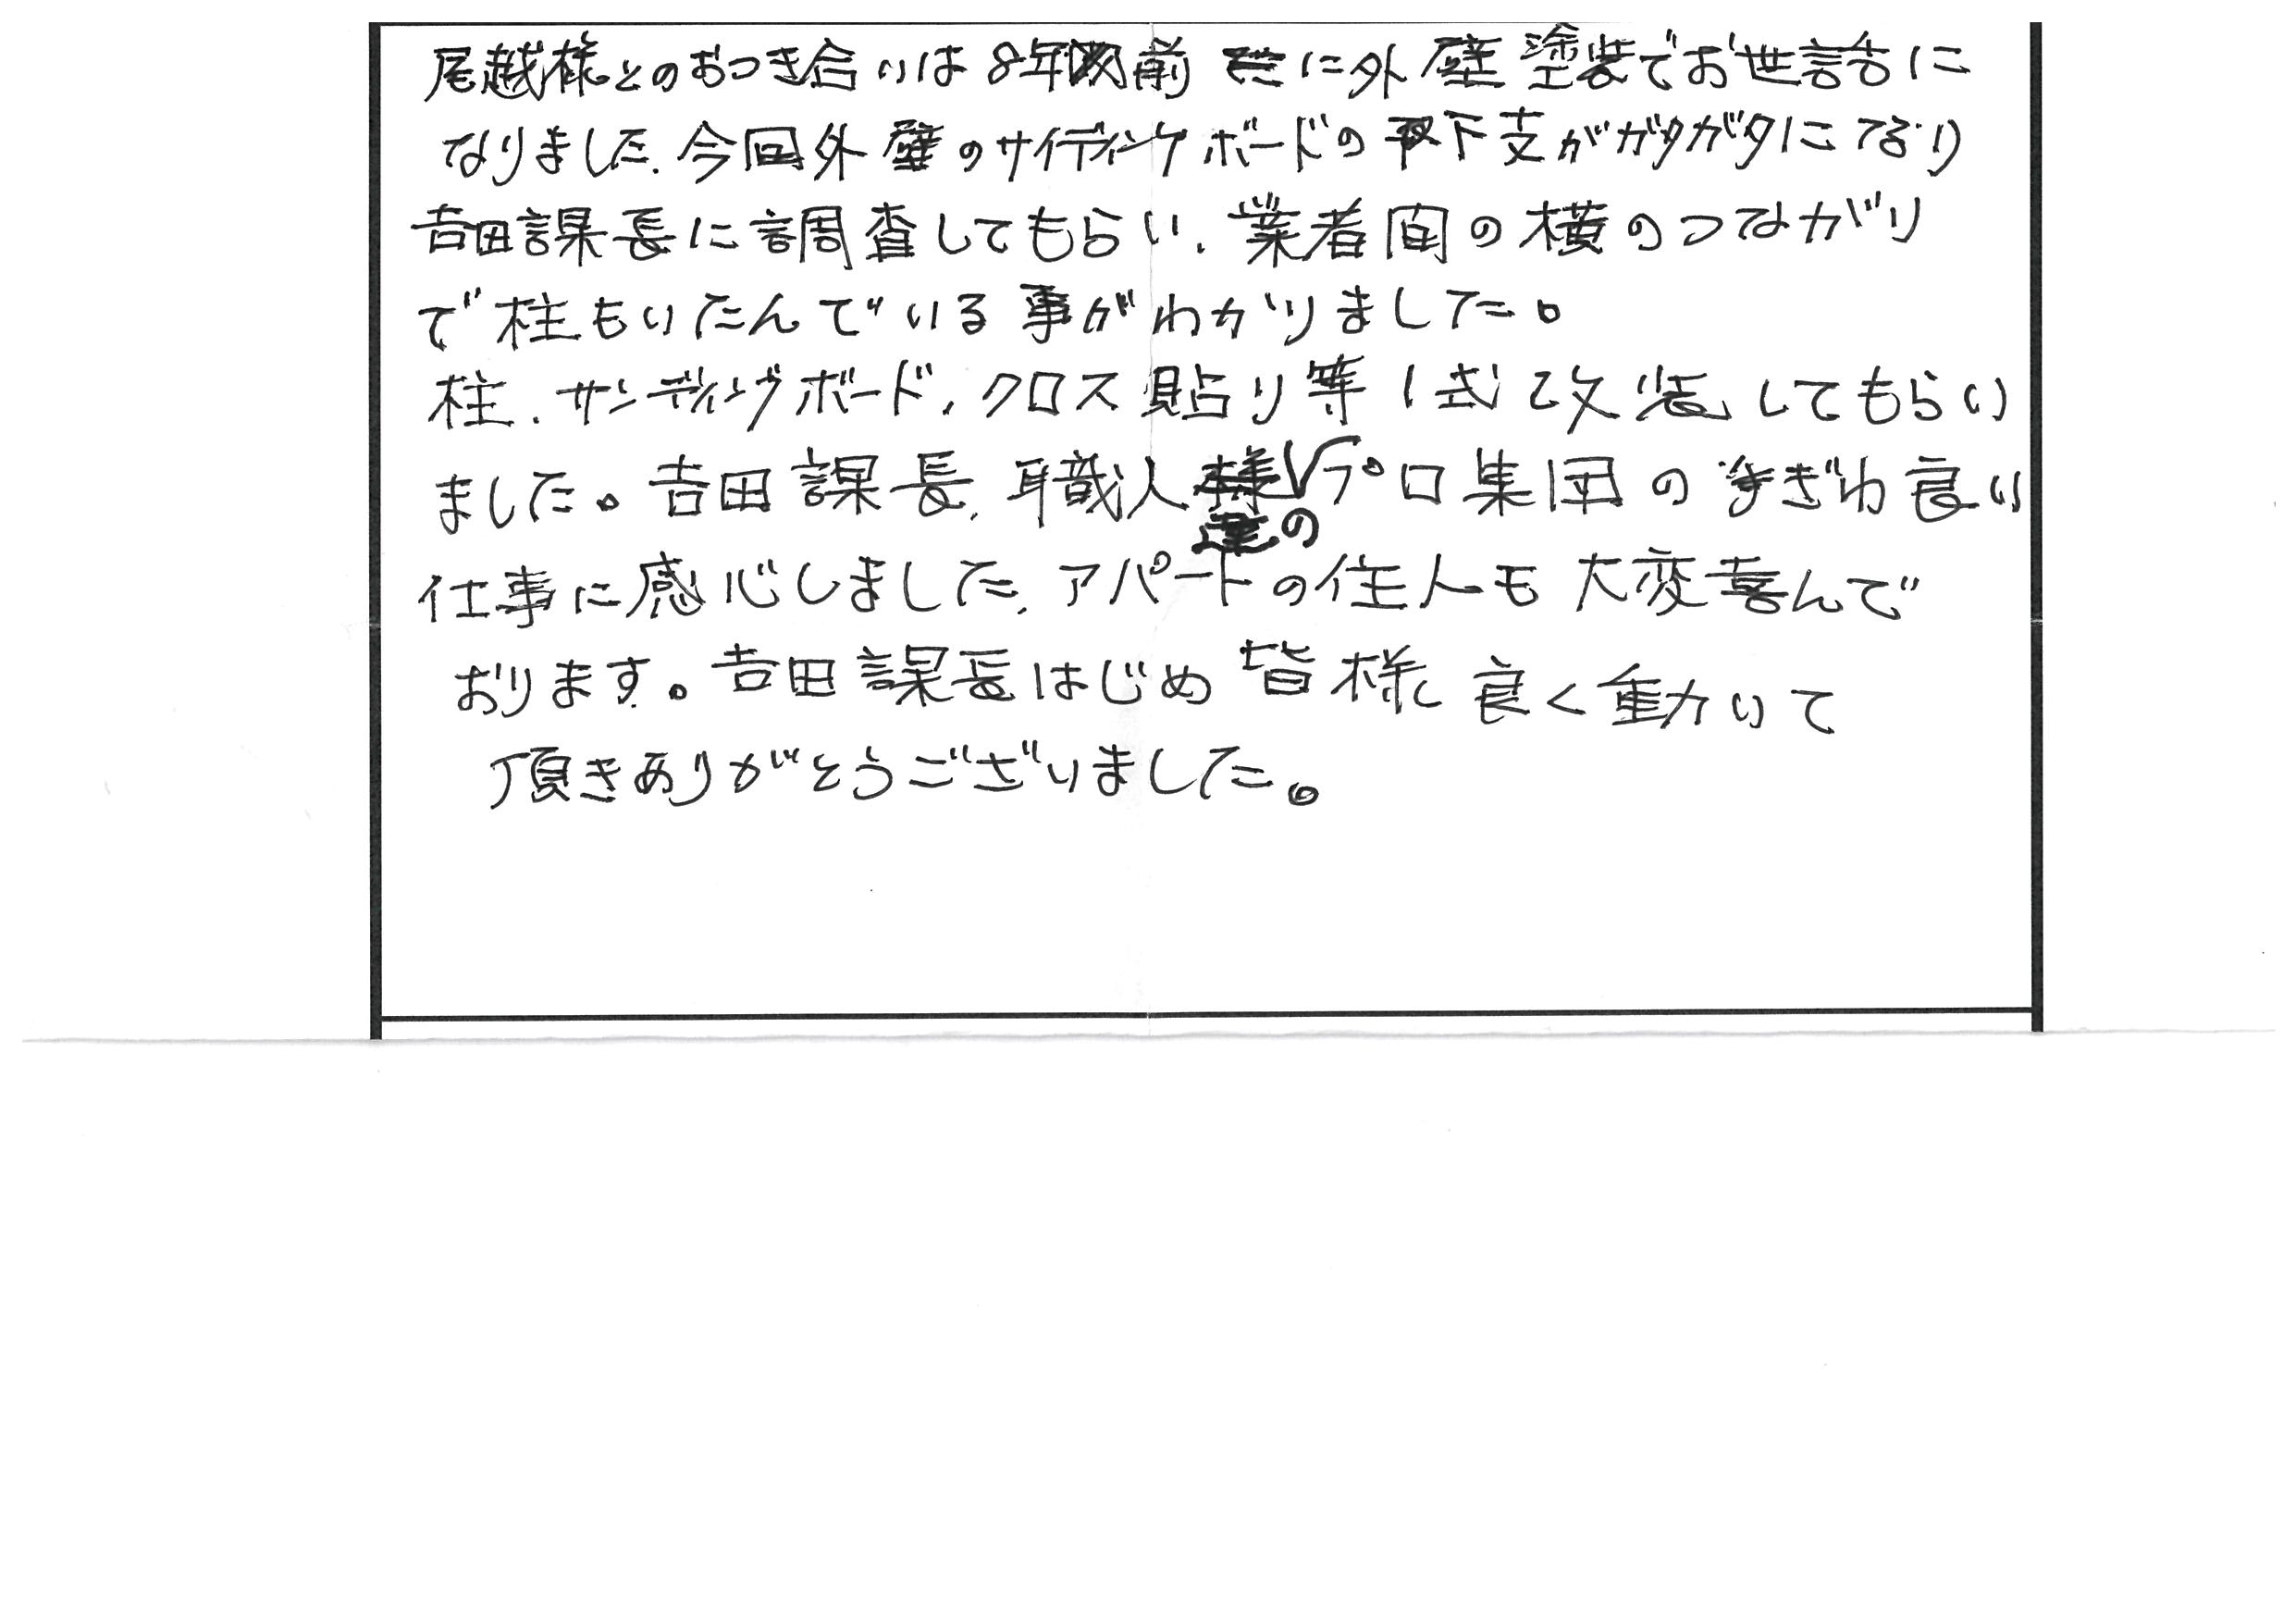 尾越様とのおつき合いは8年前に外壁塗装でお世話に
なりました、今回外壁のサイディングボードの下支がガタガタになり
吉田課長に調査してもらい、業者間の横のつながり
で柱もいたんでいる事がわかりました。
柱、サンディングボード、クロス貼り等1式改装してもらい
ました。吉田課長、職人達のプロ集団のてぎわ良い
仕事に感心しました、アパートの住人も大変喜んで
おります。吉田課長はじめ皆様良く動いて
頂きありがとうございました。